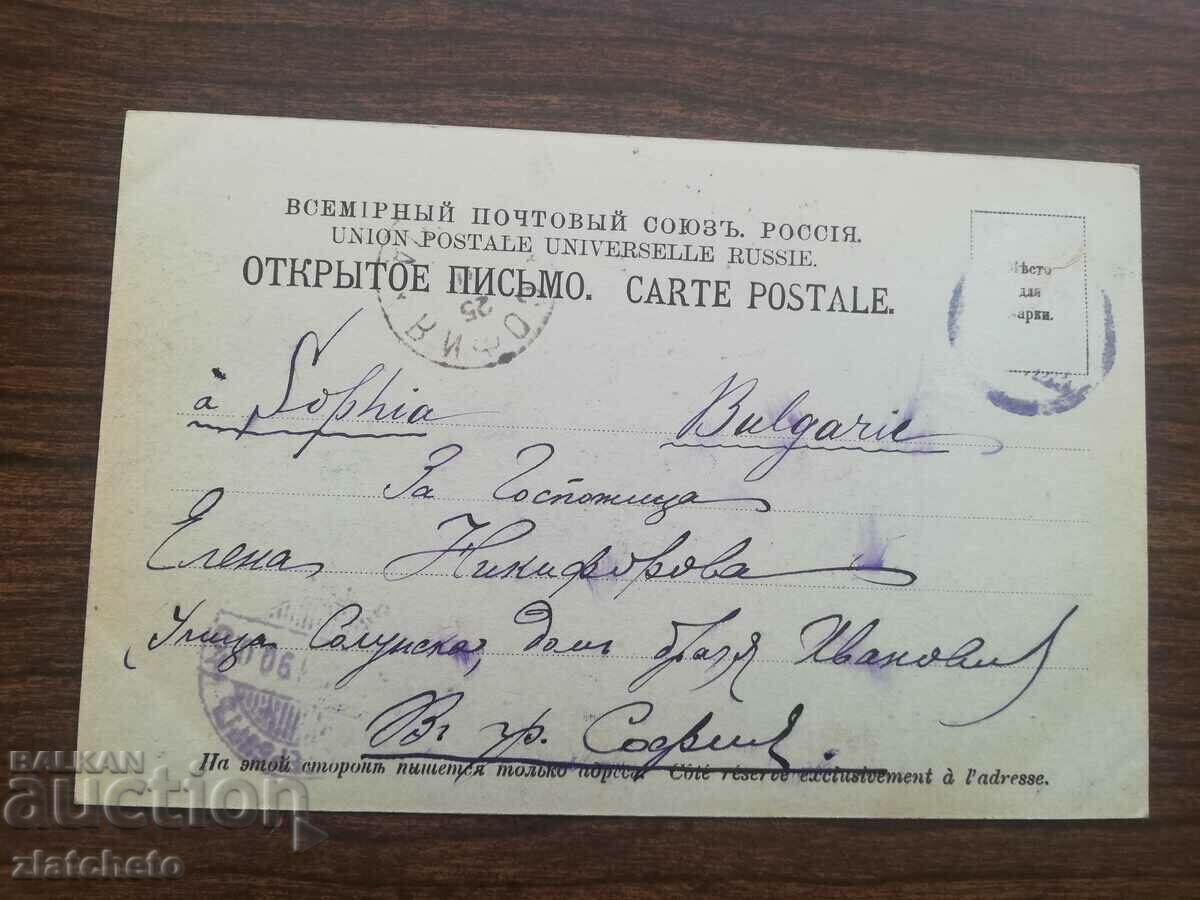 ВСЕМІРНЫЙ ПОЧТОВЫЙ СОЮЗЪ. РОССІЯ.
UNION POSTALE UNIVERSELLE RUSSIE.
ОТКРЫТОЕ ПИСЬМО. CARTE POSTALE.
Мѣсто
для
марки.
СОФИЯ
25
à Sophia Bulgarie
За Госпожица
Елена Никифорова
(Улица Солунска, домъ братя Иванови)
Въ гр. София.
На этой сторонѣ пишется только адресъ. Côté réservé exclusivement à l'adresse.
BALKAN
auction
zlatcheto